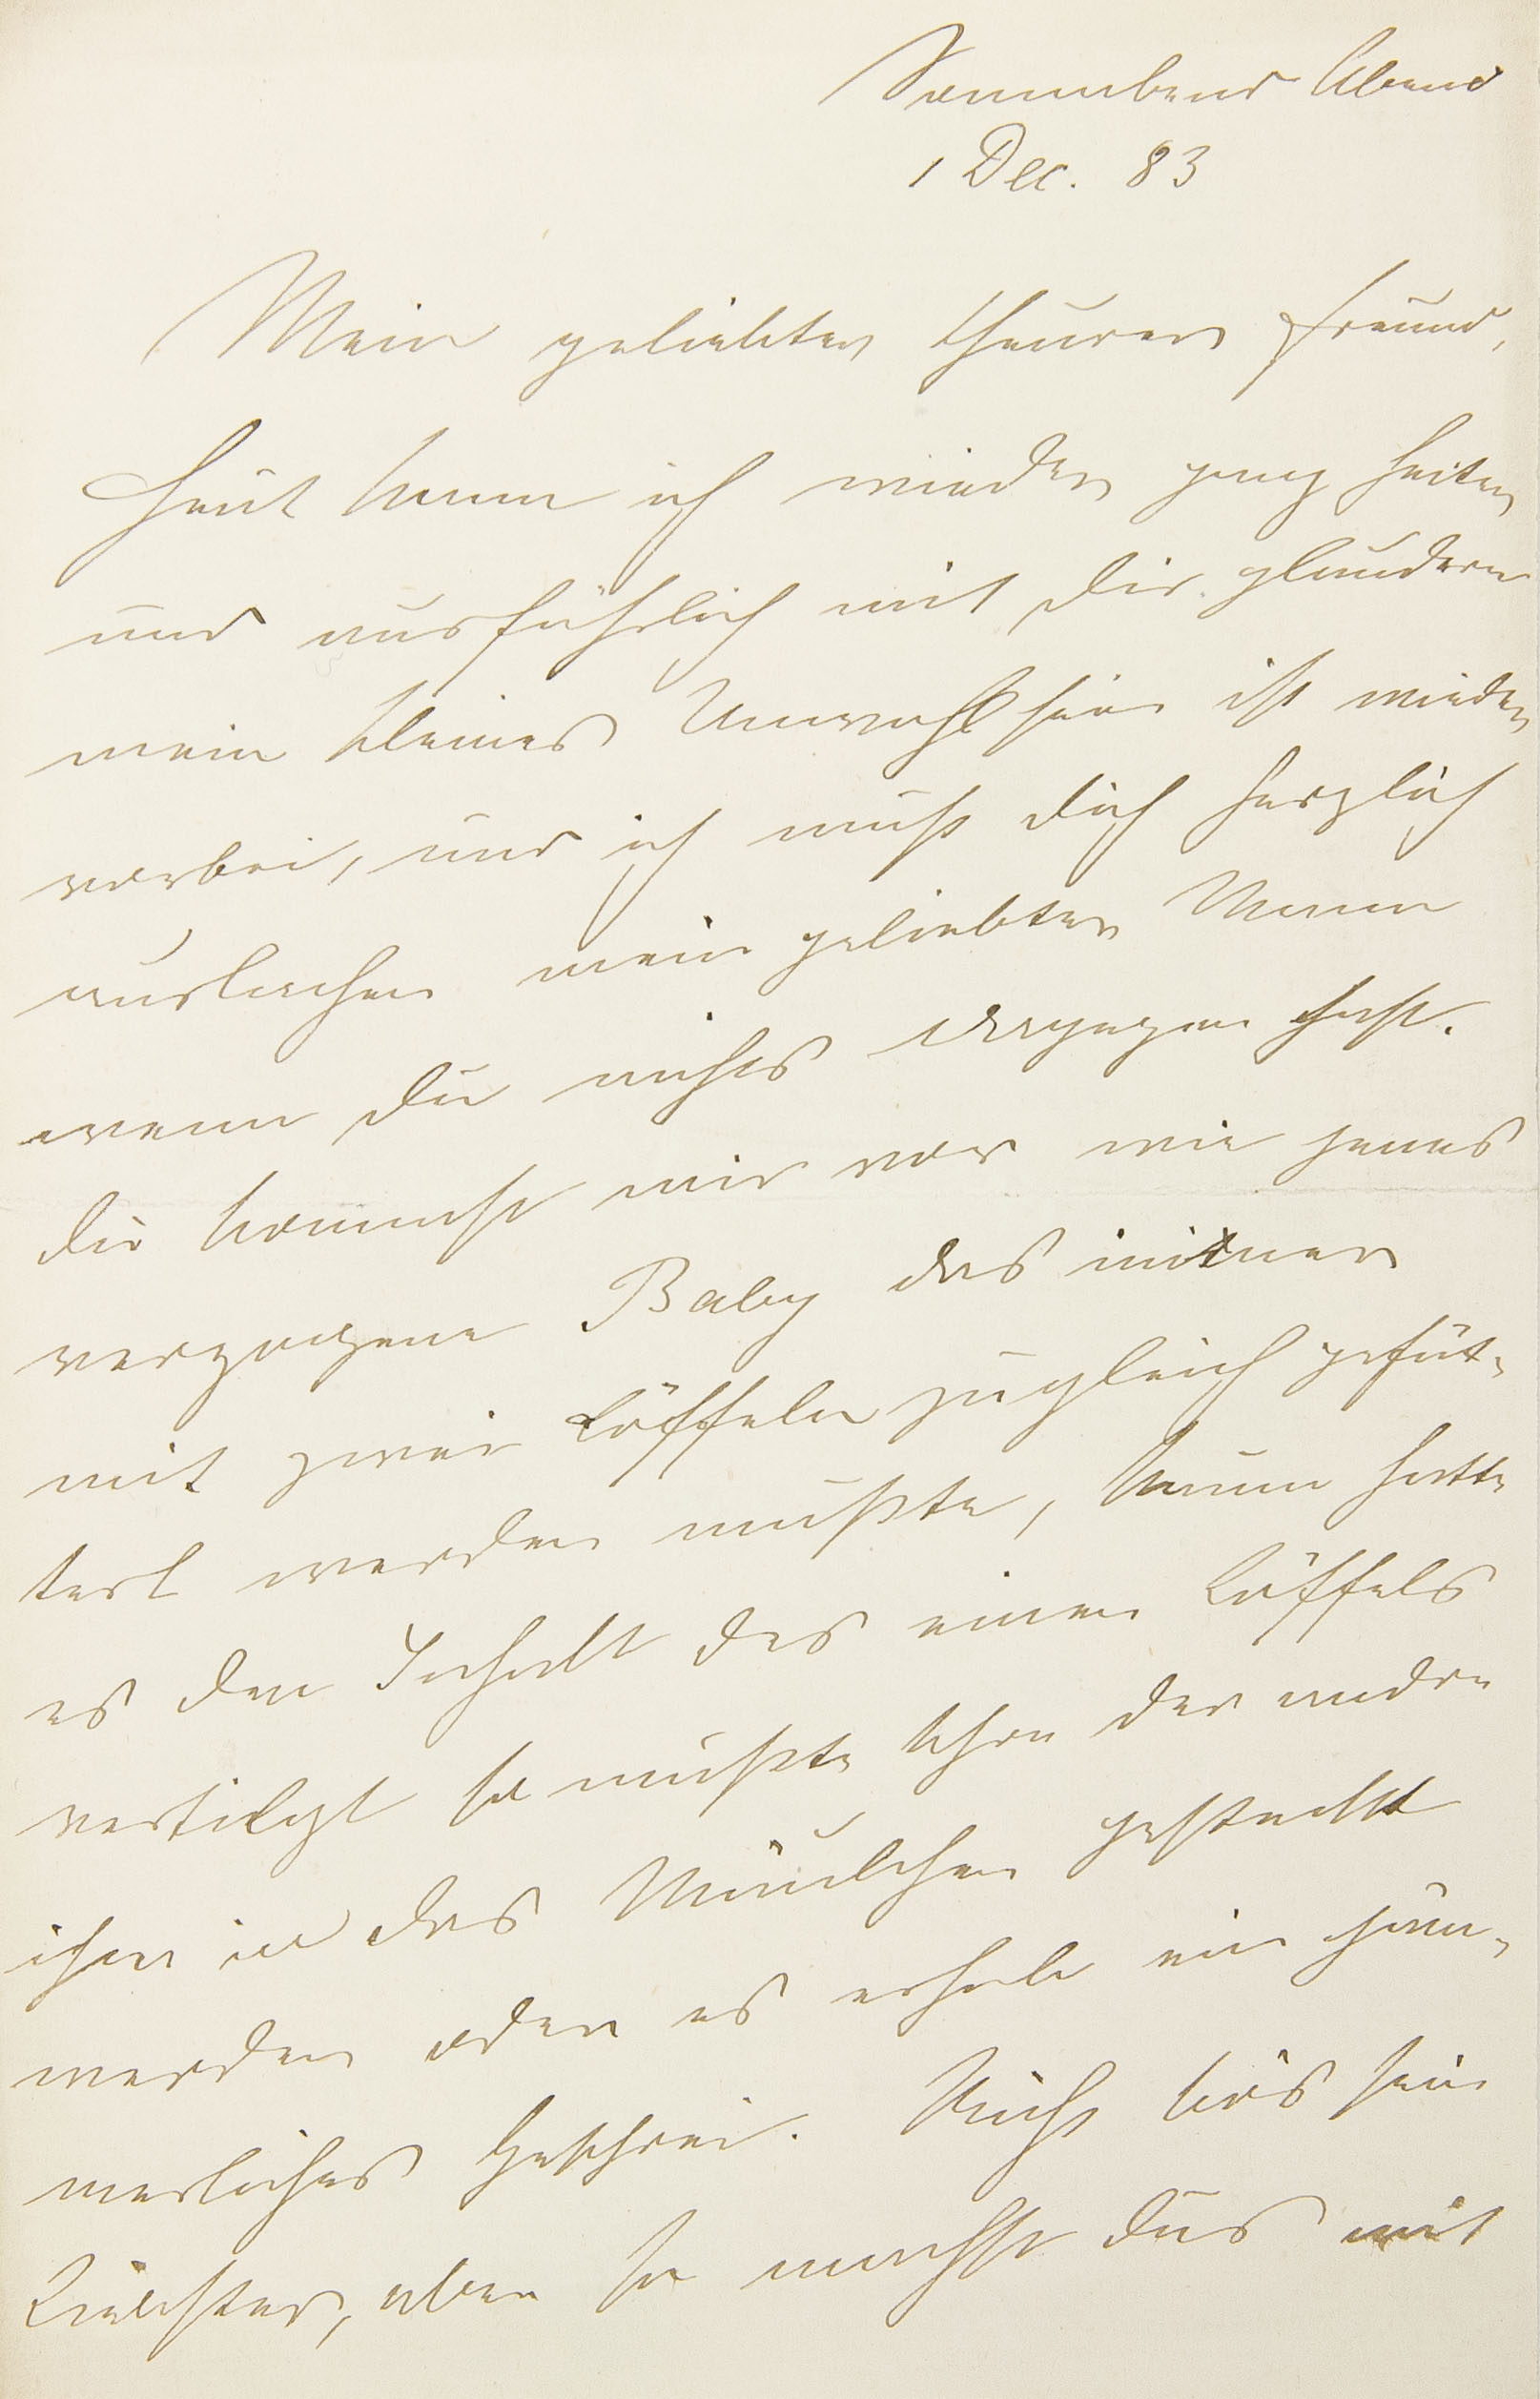 Sonnabend Abend
1 Dec. 83
Mein geliebter theurer Freund,
Heut kann ich wieder ganz heiter
und ausführlich mit Dir plaudern
mein kleines Unwohlsein ist wieder
vorbei, und ich muß Dich herzlich
auslachen mein geliebter Mann
wenn Du nichts dagegen hast.
Du kommst mir vor wie jenes
verzogene Baby das immer
mit zwei Löffeln zugleich gefüt-
tert werden mußte, kaum hatte
es den Inhalt des einen Löffels
vertilgt so mußte schon der andre
ihm in das Mäulchen gesteckt
werden oder es erhob ein jäm-
merliches Geschrei. Nicht bös sein
Liebster, aber so machst Dus mit